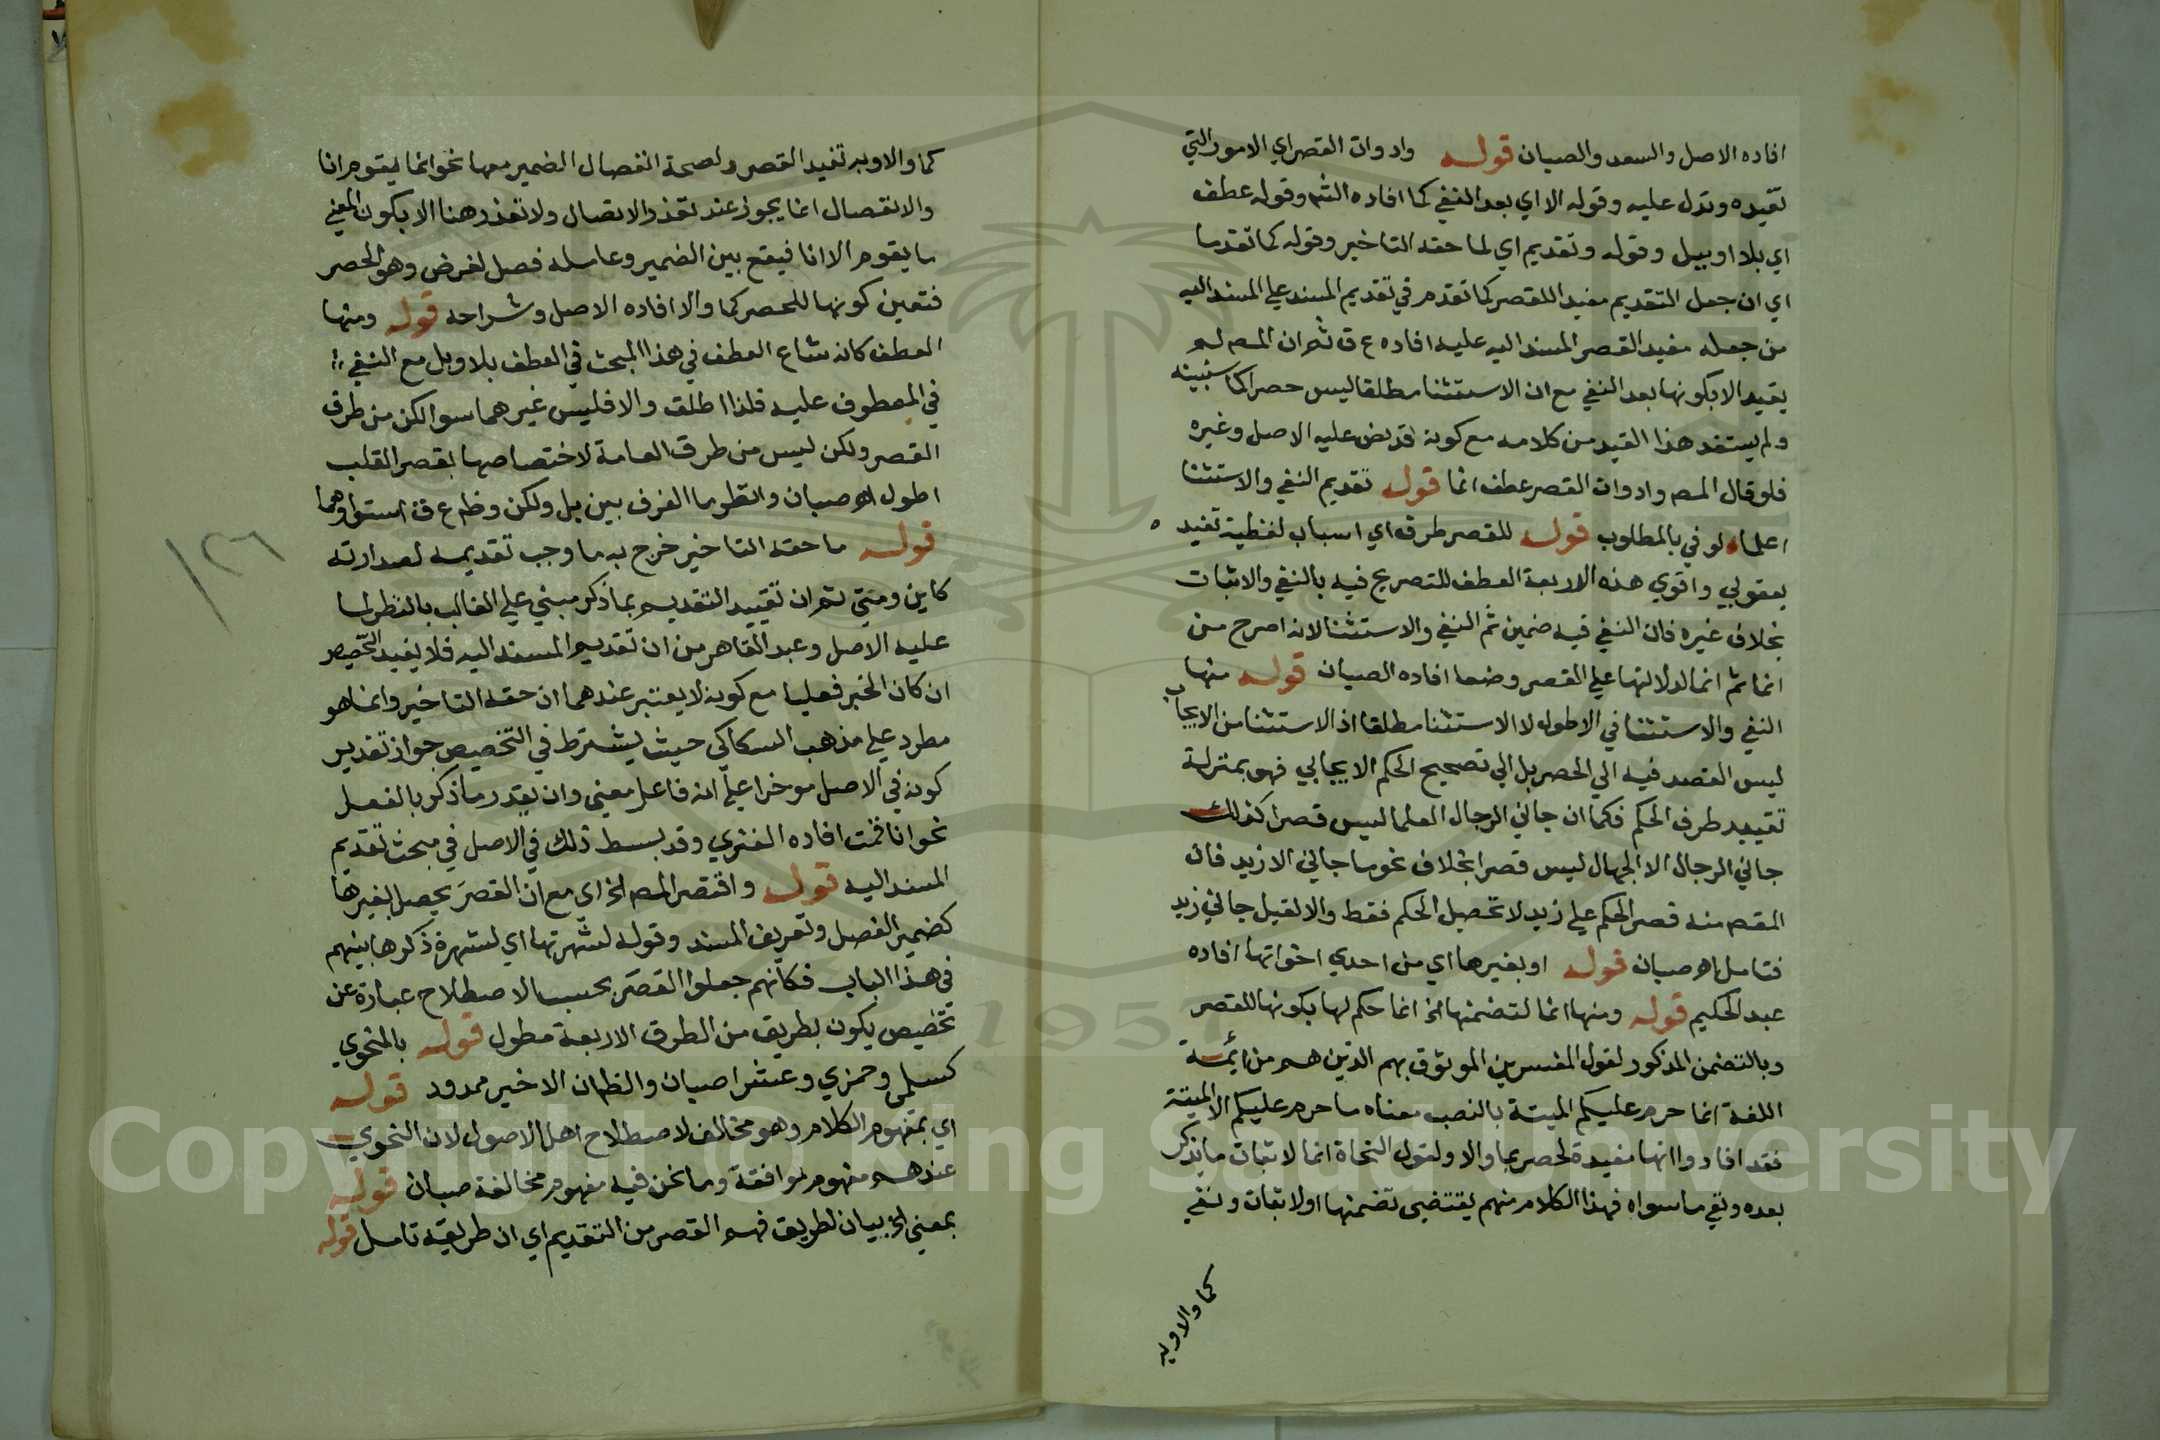 افاده الاصل والسعد والصبان قوله وادوات القصر اي الامور التي
تفيده وتدل عليه وقوله الا اي بعد النفي كما افاده الش وقوله عطف
اي بلا او ببل وقوله وتقديم اي لما حقه التاخير وقوله كما تقدما
اي ان جعل التقديم مفيد اللقصر كما تقدم في تقديم المسند علي المسند اليه
من جعله مفيد القصر المسند اليه عليه افاده ع ق ثم ان المصم لم
يقيد الا بكونها بعد النفي مع ان الاستثنا مطلقا ليس حصرا كما سنبينه
ولم يستفد هذا القيد من كلامه مع كونه قد نص عليه الاصل وغيره
فلو قال المصم وادوات القصر عطف انما قوله تقديم النفي والاستثنا
لو في بالمطلوب قوله للقصر طرق اي اسباب لفظية تفيد
يعقوبي واقوي هذه الاربعة العطف للتصريح فيه بالنفي والاثبات
بخلاف غيره فان النفي فيه ضمين ثم النفي والاستثنا لانه اصرح من
انما ثم انما لدلالتها علي القصر وضعا افاده الصبان قوله منها
النفي والاستثنا في الاطول لا الاستثنا مطلقا اذ الاستثنا من الايجاب
ليس القصد فيه الي الحصر بل الي تصحيح الحكم الايجابي فهو بمنزلة
تقييد طرف الحكم فكما ان جاني الرجال العلما ليس قصرا كذلك
جاني الرجال الا الجهال ليس قصرا بخلاف نحو ما جاني الا زيد فان
المقصم منه قصر الحكم علي زيد لا تحصيل الحكم فقط والا لقيل جاني زيد
فتامل اه صبان قوله او بغيرها اي من احدي اخواتها افاده
عبد الحكيم قوله ومنها انما لتضمنها الخ انما حكم لها بكونها للقصر
وبالتضمن المذكور لقول المفسرين الموثوق بهم الذين هم من ائمة
اللغة انما حرم عليكم الميتة بالنصب معناه ما حرم عليكم الا الميتة
فقد افادوا انها مفيدة لحصر بما والا ولقول النحاة انما لاثبات ما يذكر
بعده ونفي ما سواه فهذا الكلام منهم يقتضي تضمنها اولا ثبات ونفي
كما والا وبه
كما والا وبه تفيد القصر ولصحة انفصال الضمير معها نحو انما يقوم انا
والانفصال انما يجوز عند تعذر الاتصال ولا تعذر هنا الا بكون المعني
ما يقوم الا انا فيقع بين الضمير وعامله فصل لغرض وهو الحصر
فتعين كونها للحصر كما والا افاده الاصل وشراحه قوله ومنها
العطف كانه شاع العطف في هذا المبحث في العطف بلا وبل مع النفي
في المعطوف عليه فلذا اطلق والا فليس غيرهما سوا لكن من طرق
القصر ولكن ليس من طرق العامة لاختصاصها بقصر القلب
اطول اه صبان وانظر ما الفرق بين بل ولكن وظ ع ق استواوهما
قوله ما حقه التاخير خرج به ما وجب تقديمه لصدارته
كاين ومتي ثم ان تقييد التقديم بما ذكر مبني علي الغالب بالنظر لما
عليه الاصل وعبد القاهر من ان تقديم المسند اليه فلا يفيد التخصيص
ان كان الخبر فعليا مع كونه لا يعتبر عندهما ان حقه التاخير وانما هو
مطرد علي مذهب السكاكي حيث يشترط في التخصيص جواز تقدير
كونه في الاصل موخرا علي انه فاعل معني وان يقدر ما ذكر بالفعل
نحو انا قمت افاده الفنري وقد بسط ذلك في الاصل في مبحث تقديم
المسند اليه قوله واقتصر المصم الخ اي مع ان القصر يحصل بغيرها
كضمير الفصل وتعريف المسند وقوله لشهرتها اي لشهرة ذكرها بينهم
في هذا الباب فكانهم جعلوا القصر بحسب الاصطلاح عبارة عن
تخصيص يكون بطريق من الطرق الاربعة مطول قوله بالفحوي
كسلمي وحمزي وعشرا صبان والظان الاخير ممدود قوله
اي بمفهوم الكلام وهو مخالف لاصطلاح اهل الاصول لان الفحوي
عندهم مفهوم موافقة وما نحن فيه مفهوم مخالفة صبان قوله
بمعني الخ بيان لطريق فهم القصر من التقديم اي ان طريقه تامل قوله
١٢٦